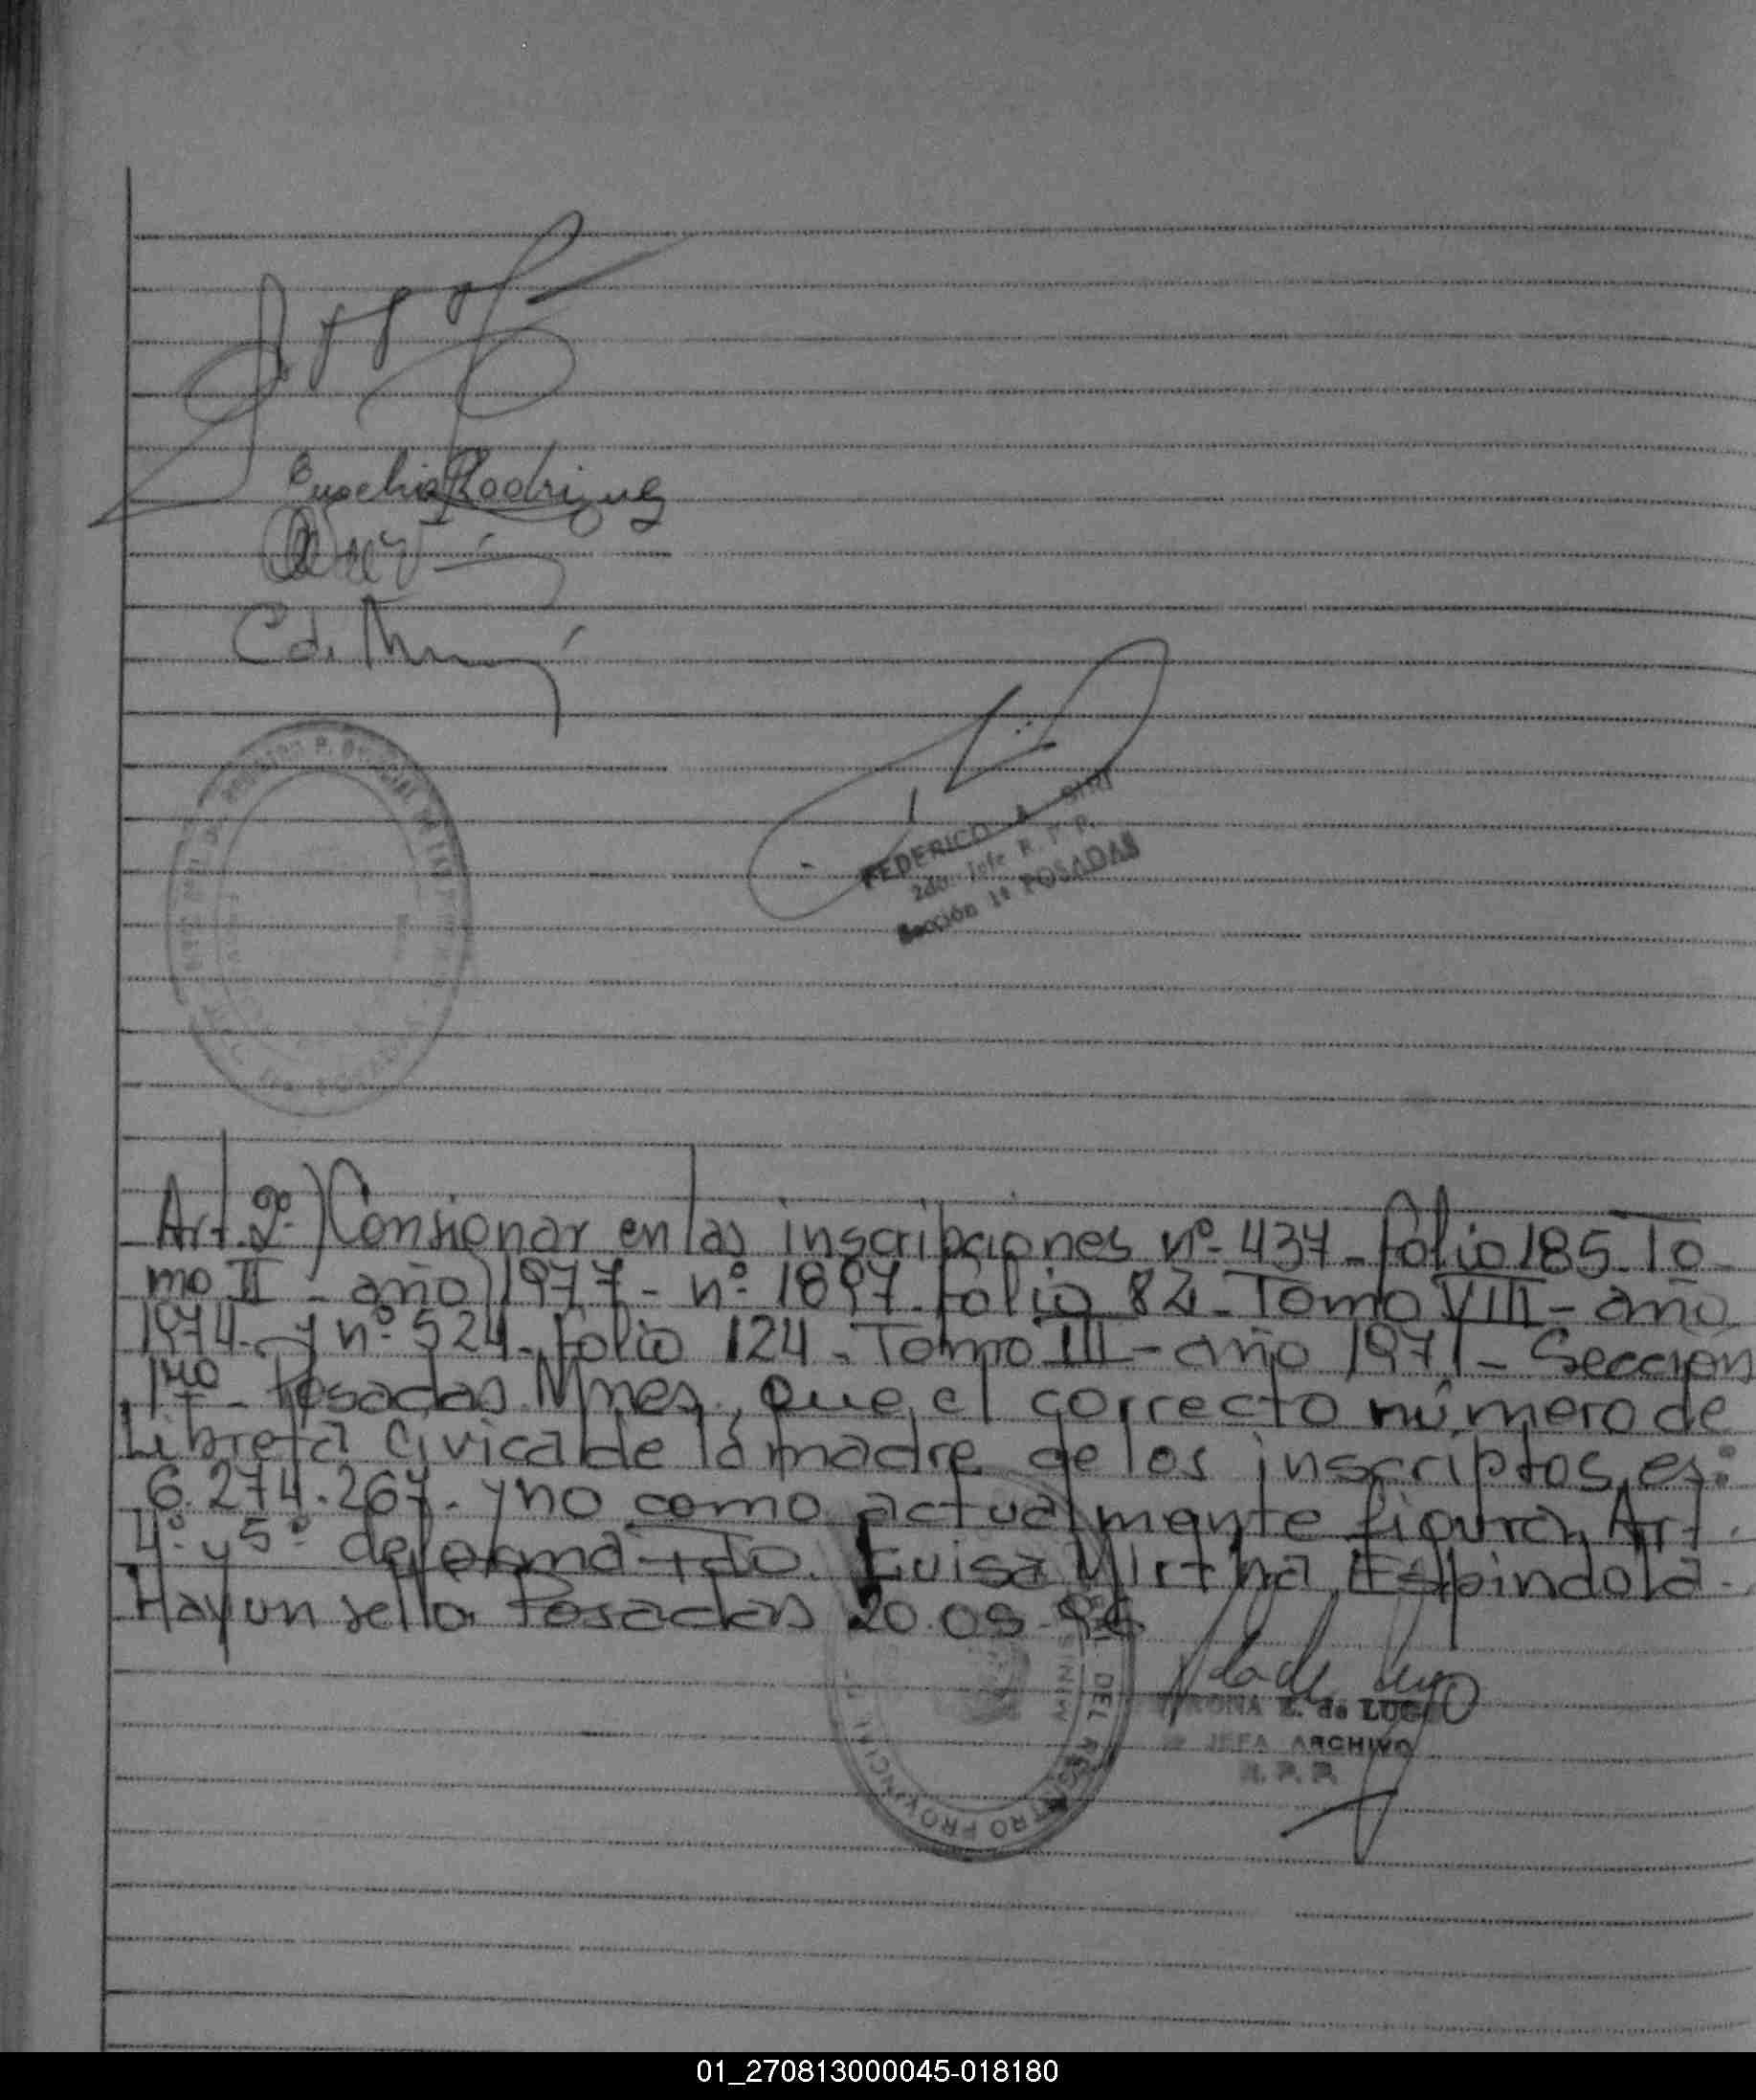 Rodriguez
C de
FEDERICO A.
2do. Jefe R. P. P.
Sección 1ª POSADAS
Art. 2º-) Consignar en las inscripciones nº- 437- folio 185- To-
mo II - año 1977- nº- 1897- folio 82- Tomo VIII - año
1974- y nº- 524- folio 124 - Tomo III - año 1971 - Sección
1ra - Posadas Mnes, que el correcto número de
Libreta Civica de la madre de los inscriptos, es:
6.274.267- y no como actualmente figura, Art.
4º y 5º de forma- Fdo. Luisa Mirtha Espindola-
Hay un sello. Posadas 20.09.96
DEL REGISTRO PROVINCIAL
E. de LUGO
JEFA ARCHIVO
R. P. P.
01_270813000045-018180